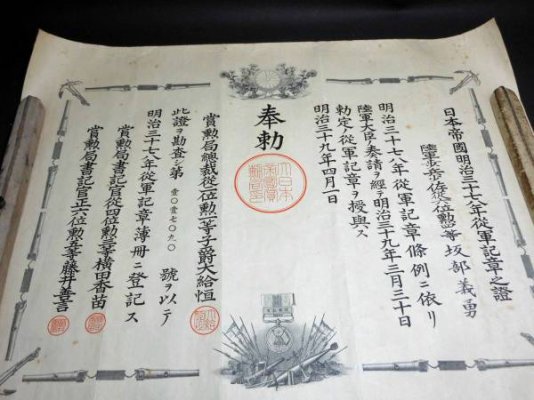 日本帝國明治三十七八年從軍記章之證
陸軍 佐從 位勲 等 坂部義勇
明治三十七八年從軍記章條例ニ依リ
陸軍大臣ノ奏請ヲ經テ明治三十九年三月三十日
勅定ノ從軍記章ヲ授與ス
明治三十九年四月一日
奉勅
大日本帝國賞勲局印
賞勲局總裁從 位勲一等子爵大給恒
此證ヲ勘査シ第壹〇壹七〇九〇號ヲ以テ
明治三十七八年從軍記章簿冊ニ登記ス
賞勲局書記官從四位勲三等横田香苗
賞勲局書記官正六位勲五等藤井善言